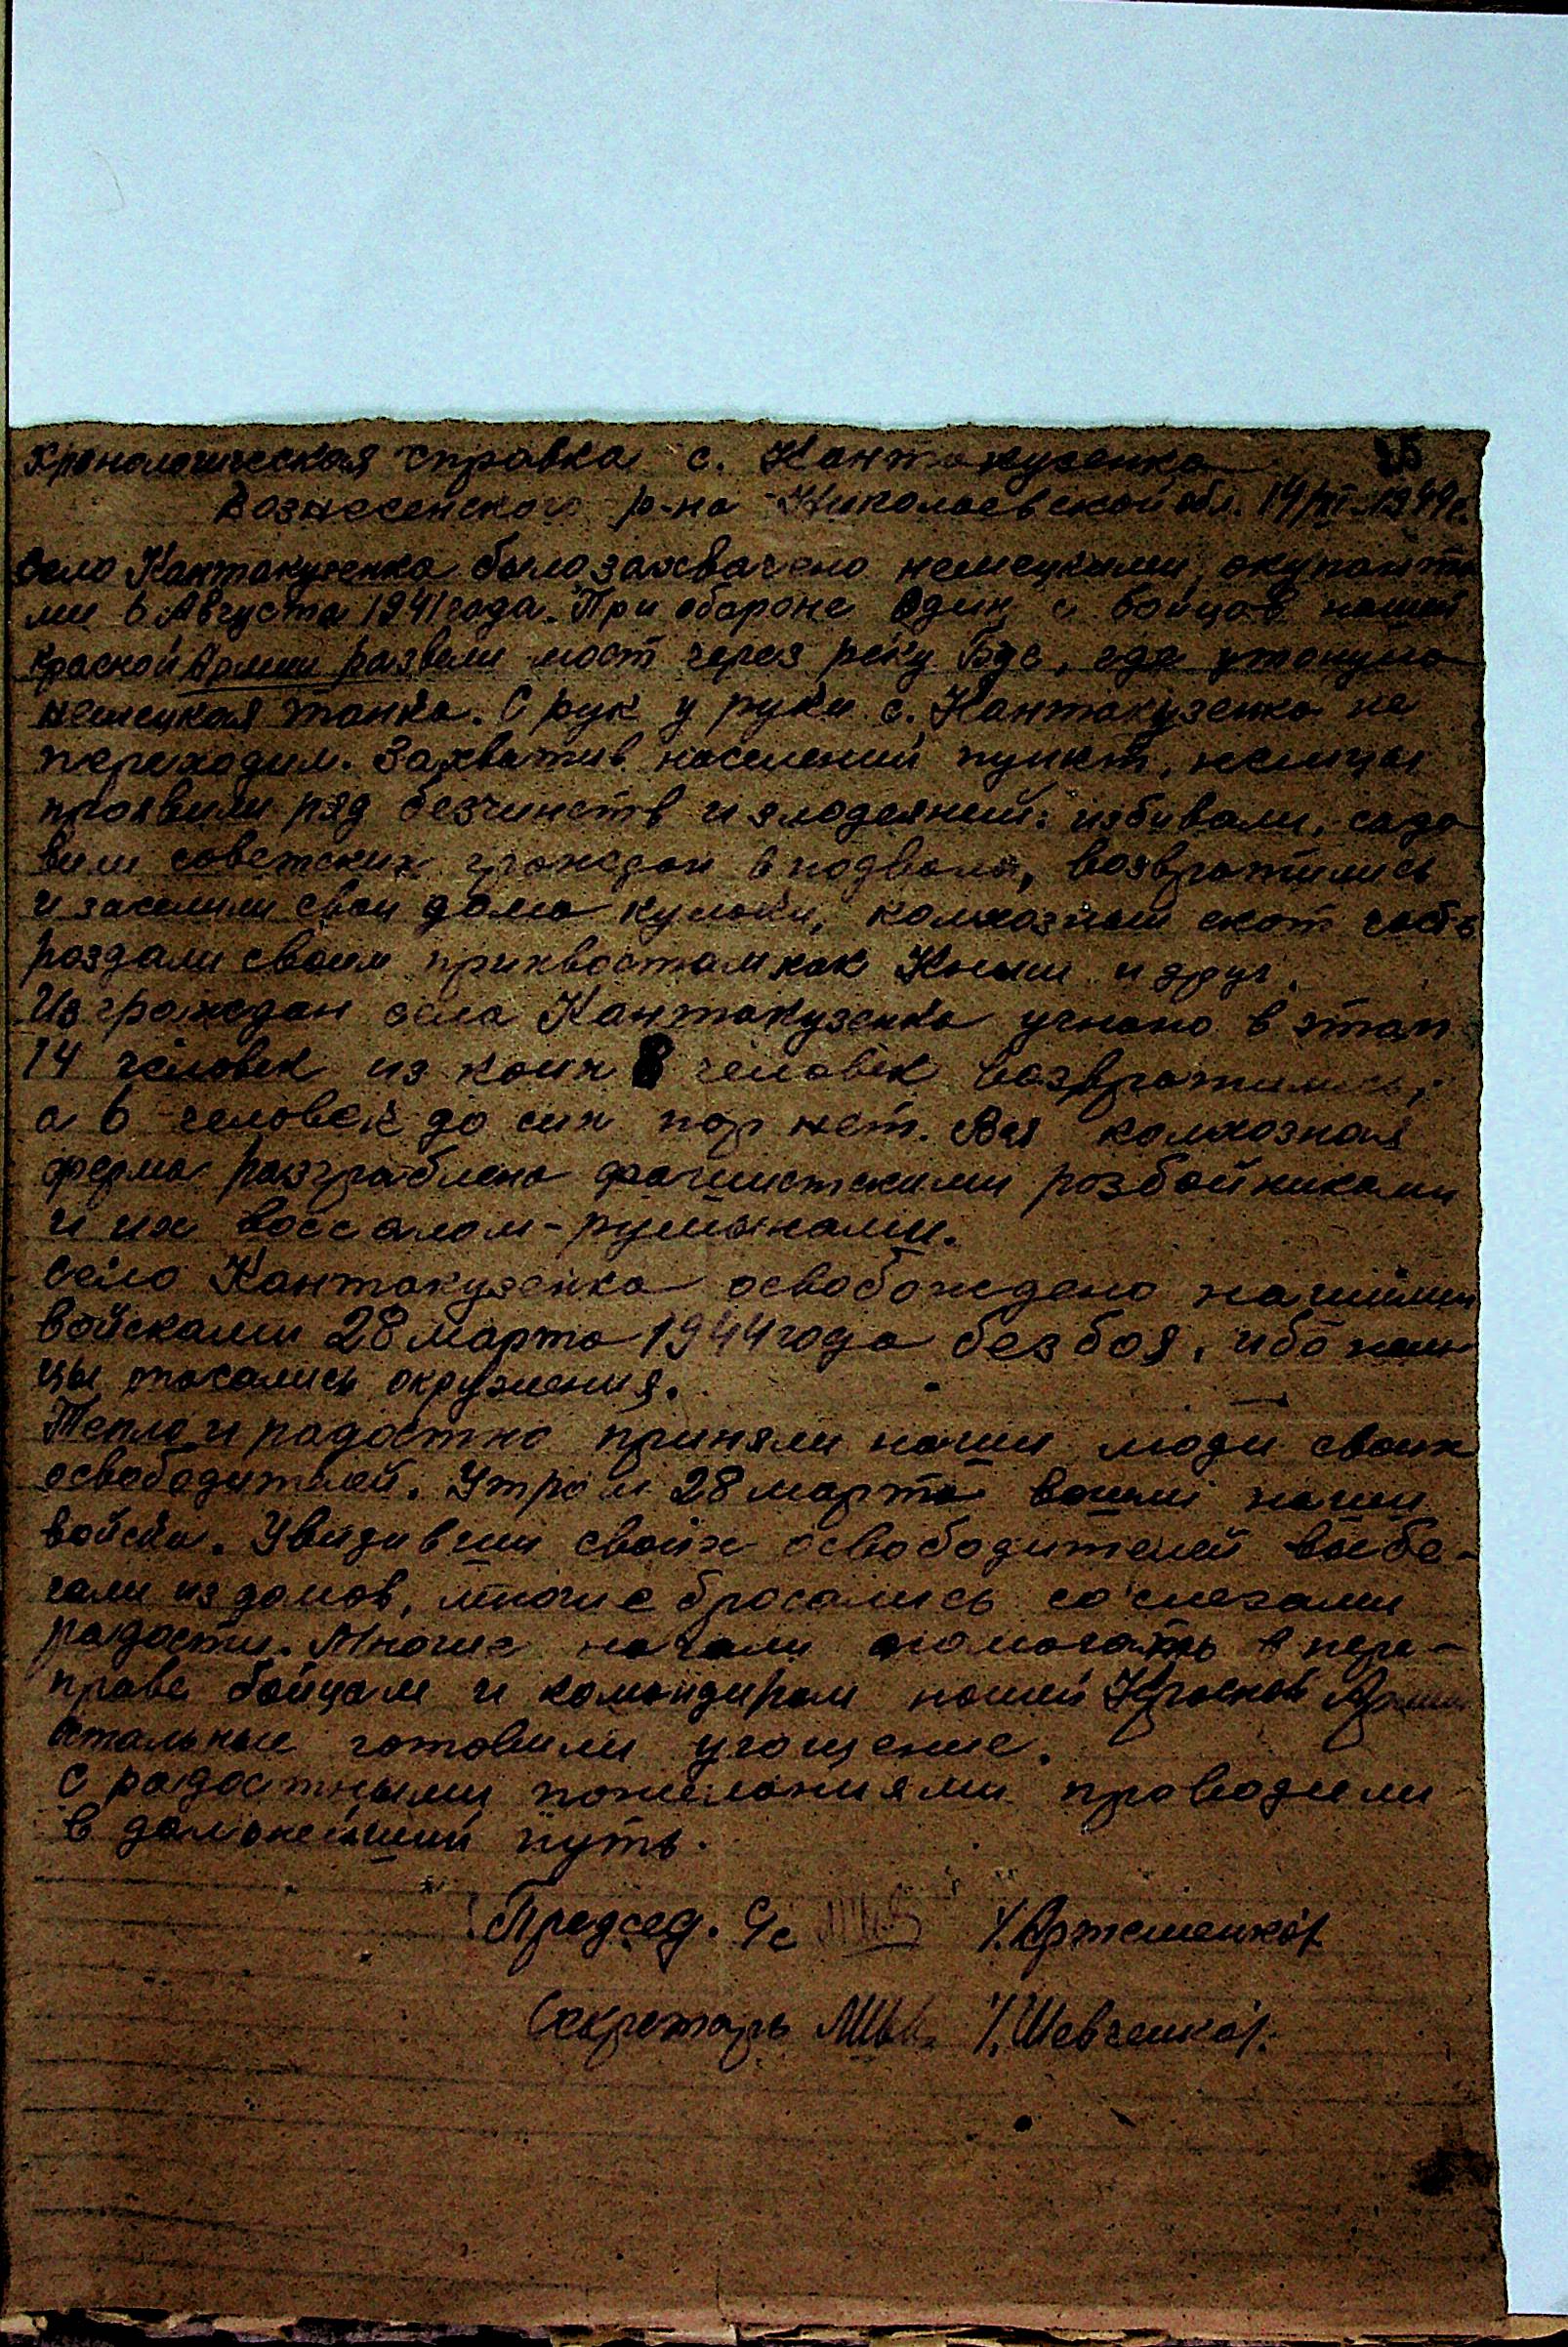 Хронологическая справка с. Кантакузенка
Вознесенского р-на Николаевской обл. 1944 г.
Село Кантакузенка было захвачено немецкими окупанта
ми 6 Августа 1941 года. При обороне один с бойцов нашей
Красной Армии развели мост через реку Буг, где утонула
немецкая танка. С рук у руки с. Кантакузенка не
переходил. Захватив населений пункт, немцы
проявили ряд безчинств и злодеяний: избивали, садо
вили советских граждан в подвалы, возвратились
и заселили свои дома кулаки, колхозный скот часть
роздали своим прихвостам как Кныш и друг.
Из граждан села Кантакузенка угнано в этап
14 человек из коих 8 человек возвратились,
а 6 человек до сих пор нет. Вся колхозная
ферма разграблена фашистскими розбойниками
и их воссалом-румынами.
Село Кантакузенка освобождено нашими
войсками 28 марта 1944 года без боя, ибо нем
цы опасались окружения.
Тепло и радостно приняли наши люди своих
освободителей. Утром 28 марта вошли наши
войска. Увидивши своих освободителей выбе-
гали из домов, многие бросались со слезами
радости. Многие начали помогать в пере-
праве бойцам и командирам нашей Красной Армии
остальные готовили угощение.
С радостными пожеланиями проводили
в дальнейший путь.
Председ. с/с /Артеменко/
Секретарь /Шевченко/.